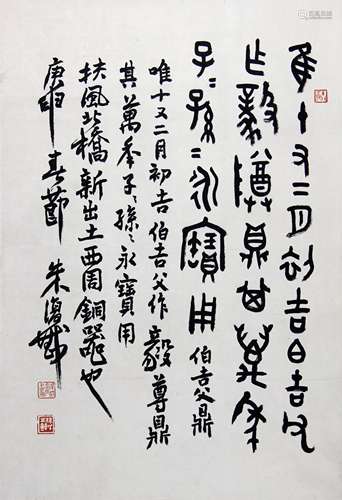 隹十又二月初吉白吉父
乍毅尊鼎其萬年
子〻孫〻永寶用 伯吉父鼎
唯十又二月初吉伯吉父作毅尊鼎
其萬年子〻孫〻永寶用
扶風北橋新出土西周銅器也
庚申春節 朱復戡